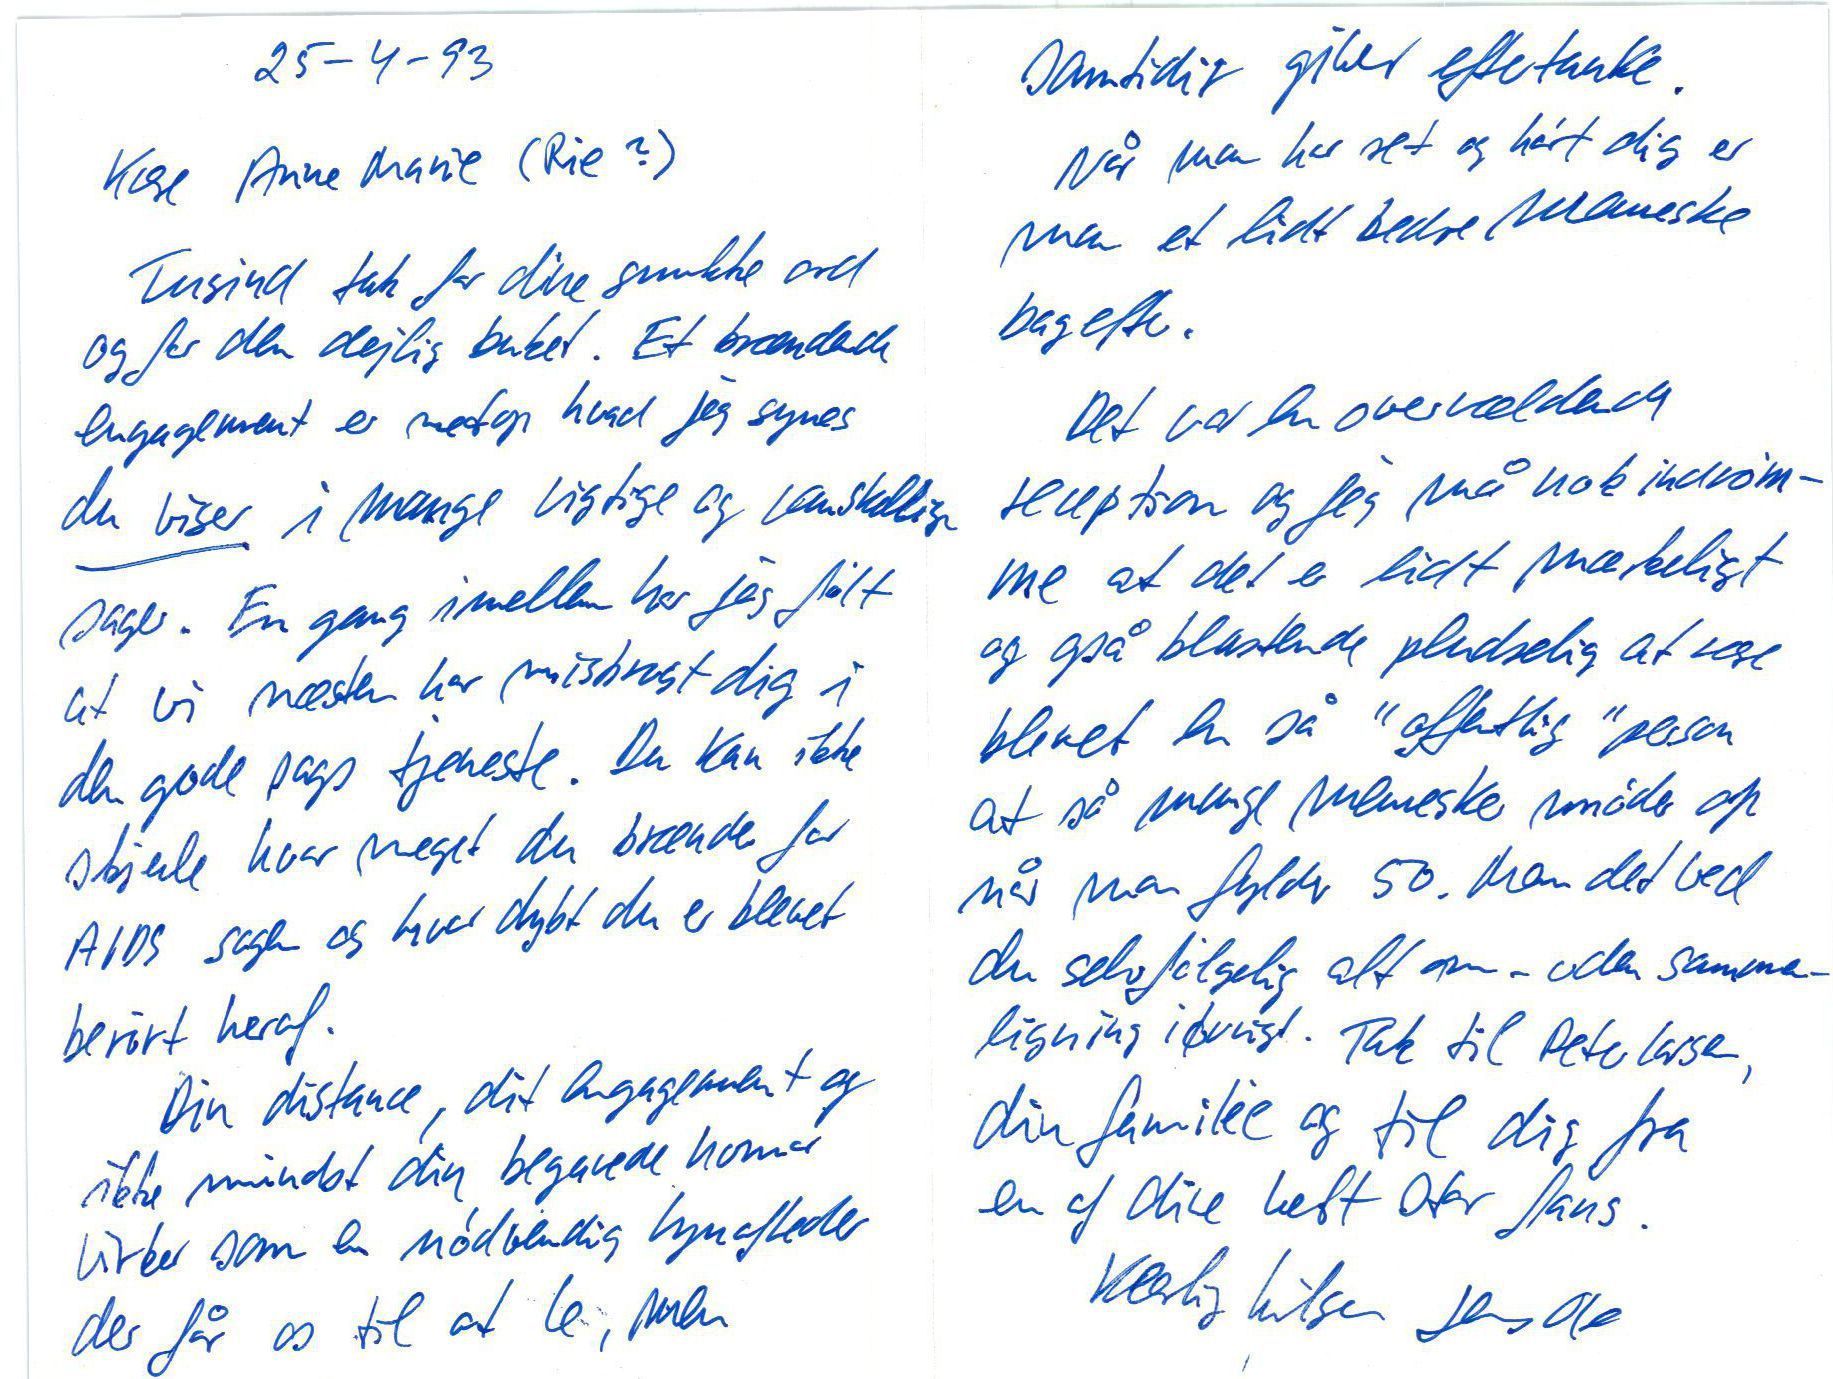 25-4-93
Kære Anne Marie (Rie?)
Tusind tak for dine smukke ord
og for den dejlig buket. Et brændende
engagement er netop hvad jeg synes
du viser i mange vigtige og vanskellige
sager. En gang imellem har jeg følt
at vi næsten har misbrugt dig i
den gode sags tjeneste. Du kan ikke
skjule hvor meget du brænder for
AIDS sagen og hvor dybt du er blevet
berørt heraf.
Din distance, dit engagement og
ikke mindst din begavede humor
virker som en nødvendig lynafleder
der får os til at le, men
samtidig giver eftertanke.
Når man har set og hørt dig er
man et lidt bedre menneske
bagefter.
Det var en overvældende
reception og jeg må nok indrøm-
me at det er lidt mærkeligt
og også belastende pludselig at være
blevet en så "offentlig" person
at så mange mennesker møder op
når man fylder 50. Men det ved
du selvfølgelig alt om - uden sammen-
ligning iøvrigt. Tak til Peter Larsen,
din familie og til dig fra
en af dine helt store fans.
Kærlig hilsen Jens Ole